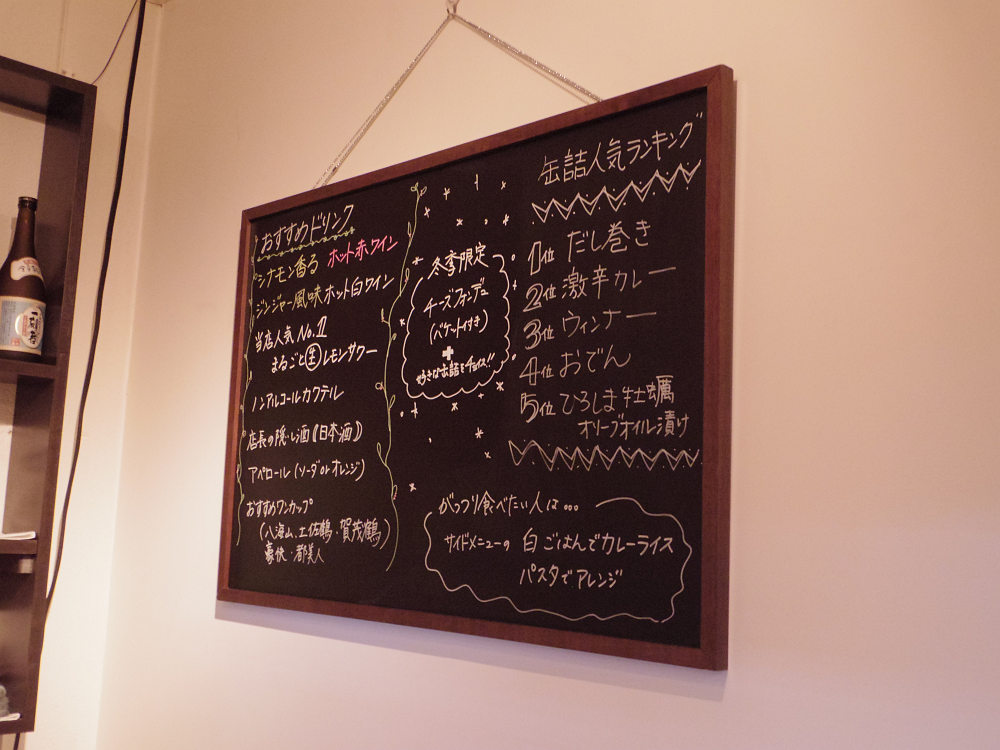 おすすめドリンク
シナモン香る ホット赤ワイン
ジンジャー風味ホット白ワイン
当店人気No.1
まるごと生レモンサワー
ノンアルコールカクテル
店長の隠し酒(日本酒)
アペロール(ソーダorオレンジ)
おすすめワンカップ
(八海山、土佐鶴・賀茂鶴)
豪快・都美人
冬季限定
チーズフォンデュ
(バケット付き)
+
好きな缶詰をチョイス!!
缶詰人気ランキング
1位 だし巻き
2位 激辛カレー
3位 ウィンナー
4位 おでん
5位 ひろしま牡蠣
オリーブオイル漬け
がっつり食べたい人は...
サイドメニューの 白ごはんでカレーライス
パスタでアレンジ